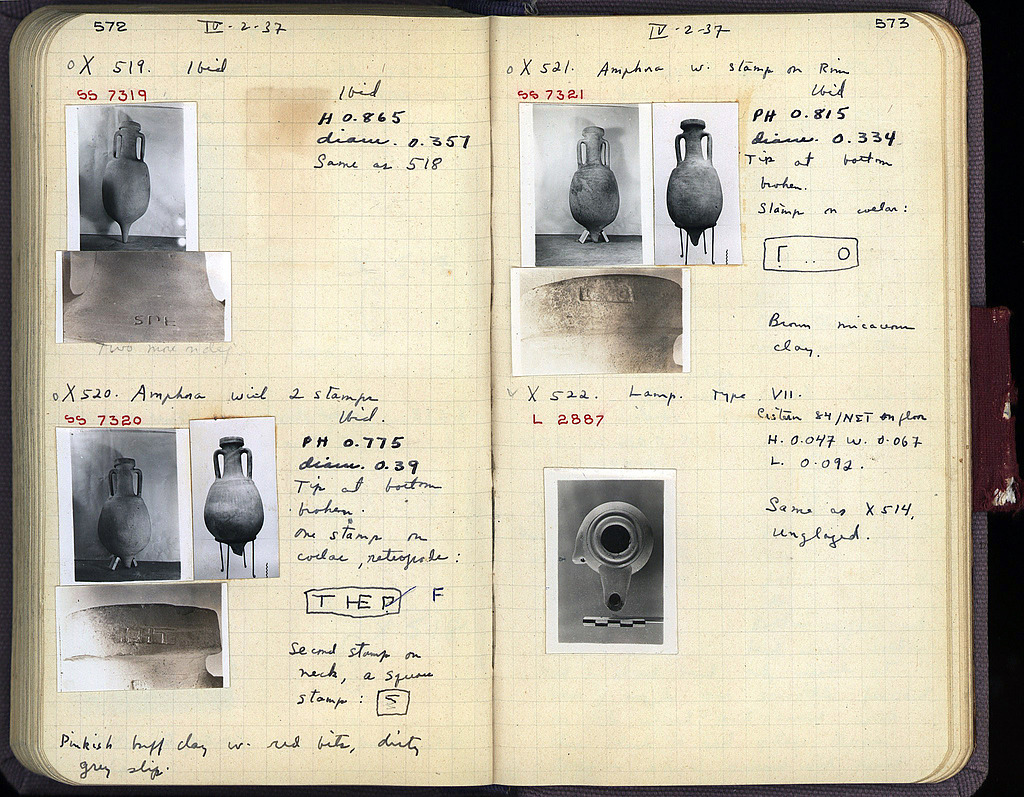 572
IV-2-37
X 519. Ibid
SS 7319
Ibid
H 0.865
diam. 0.357
Same as 518
Two more
X 520. Amphora with 2 stamps
SS 7320
Ibid.
PH 0.775
diam. 0.39
Tip at bottom
broken.
One stamp on
collar, retrograde:
F
Second stamp on
neck, a square
stamp: S
Pinkish buff clay w. red bits, dirty
grey slip.
573
IV-2-37
X 521. Amphora w. stamp on Rim
SS 7321
Ibid
PH 0.815
diam. 0.334
Tip at bottom
broken.
Stamp on collar:
Γ .. O
Brown micaceous
clay.
X 522. Lamp. Type VII.
L 2887
Cistern 84/NET on floor
H. 0.047 W. 0.067
L. 0.092.
Same as X 514,
unglazed.